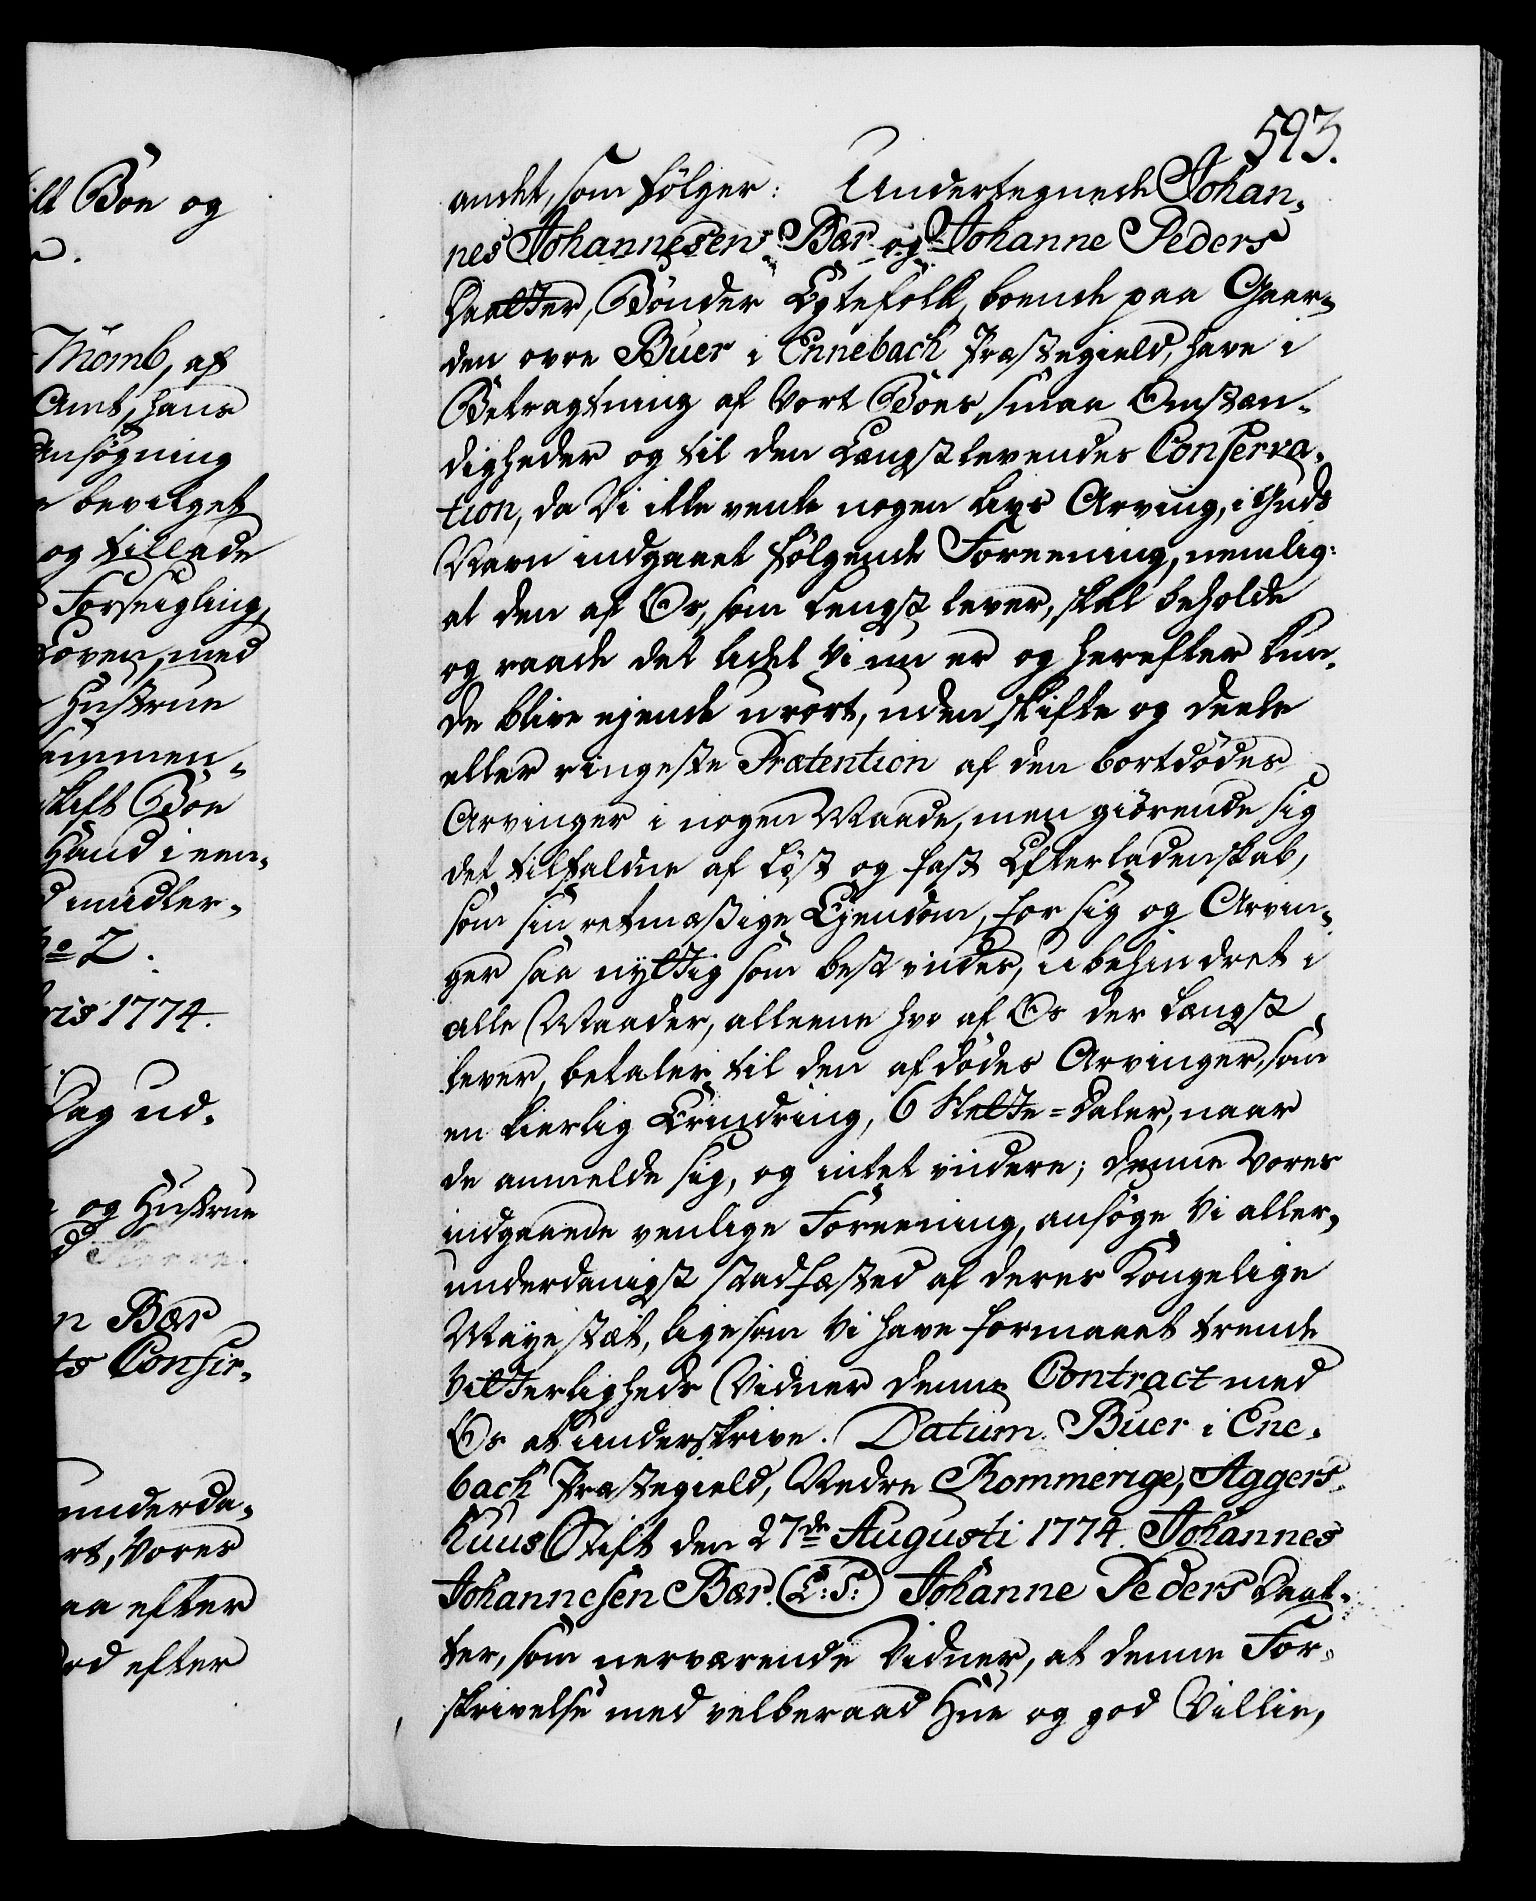 ilt Boe og
Thomb, af
Amt, hans
Ansøgning
bevilget
og tillade
Forseigling,
Loven, med
Hustrue
sammen-
skift Boe
Haand i een-
midler-
No 2.
bris 1774.
Dag ud-
og Hustrue
n Bær
ts Confir-
underda-
rt, vores
aa efter
od efter
593.
andet, som følger: Undertegnede Johan-
nes Johannesen Bær og Johanne Peders
Daatter, Bønder Egtefolk, boende paa Gaar-
den øvre Buer i Ennebach Præstegield, have i
Betragtning af vort Boes smaa Omstæn-
digheder og til den Længstlevendes Conserva-
tion, da Vi ikke vente nogen Livs Arving, i Guds
Navn indgaaet følgende Foreening, nemlig:
at den af Os, som lengst lever, skal beholde
og raade det lidet Vi nu er og herefter kun-
de blive ejende urørt, uden skifte og deele
eller ringeste Prætention af den bortdødes
Arvinger i nogen Maade, men giørende sig
det tilfaldne af løst og fast Efterladenskab,
som sin retmæßige Ejendom, for sig og Arvin-
ger saa nyttig som best vides, ubehindret i
alle Maader, alleene hvo af Os der længst
lever, betaler til den afdødes Arvinger, som
en kierlig Erindring, 6 Slette-Daler, naar
de anmelde sig, og intet videre; denne vores
indgaaede venlige Foreening, ansøge Vi aller-
underdanigst stadfæsted af deres Kongelige
Mayestæt, ligesom Vi have formaaet trende
Vitterligheds Vidner denne Contract med
Os at underskrive. Datum Buer i Ene-
bach Præstegield, Nedre Rommerige, Aggers-
huus Stift den 27de Augusti 1774. Johannes
Johannesen Bær. (L: S:) Johanne Peders Daat-
ter, som nerværende Vidner, at denne For-
skrivelse med velberaad Hue og god Villie,